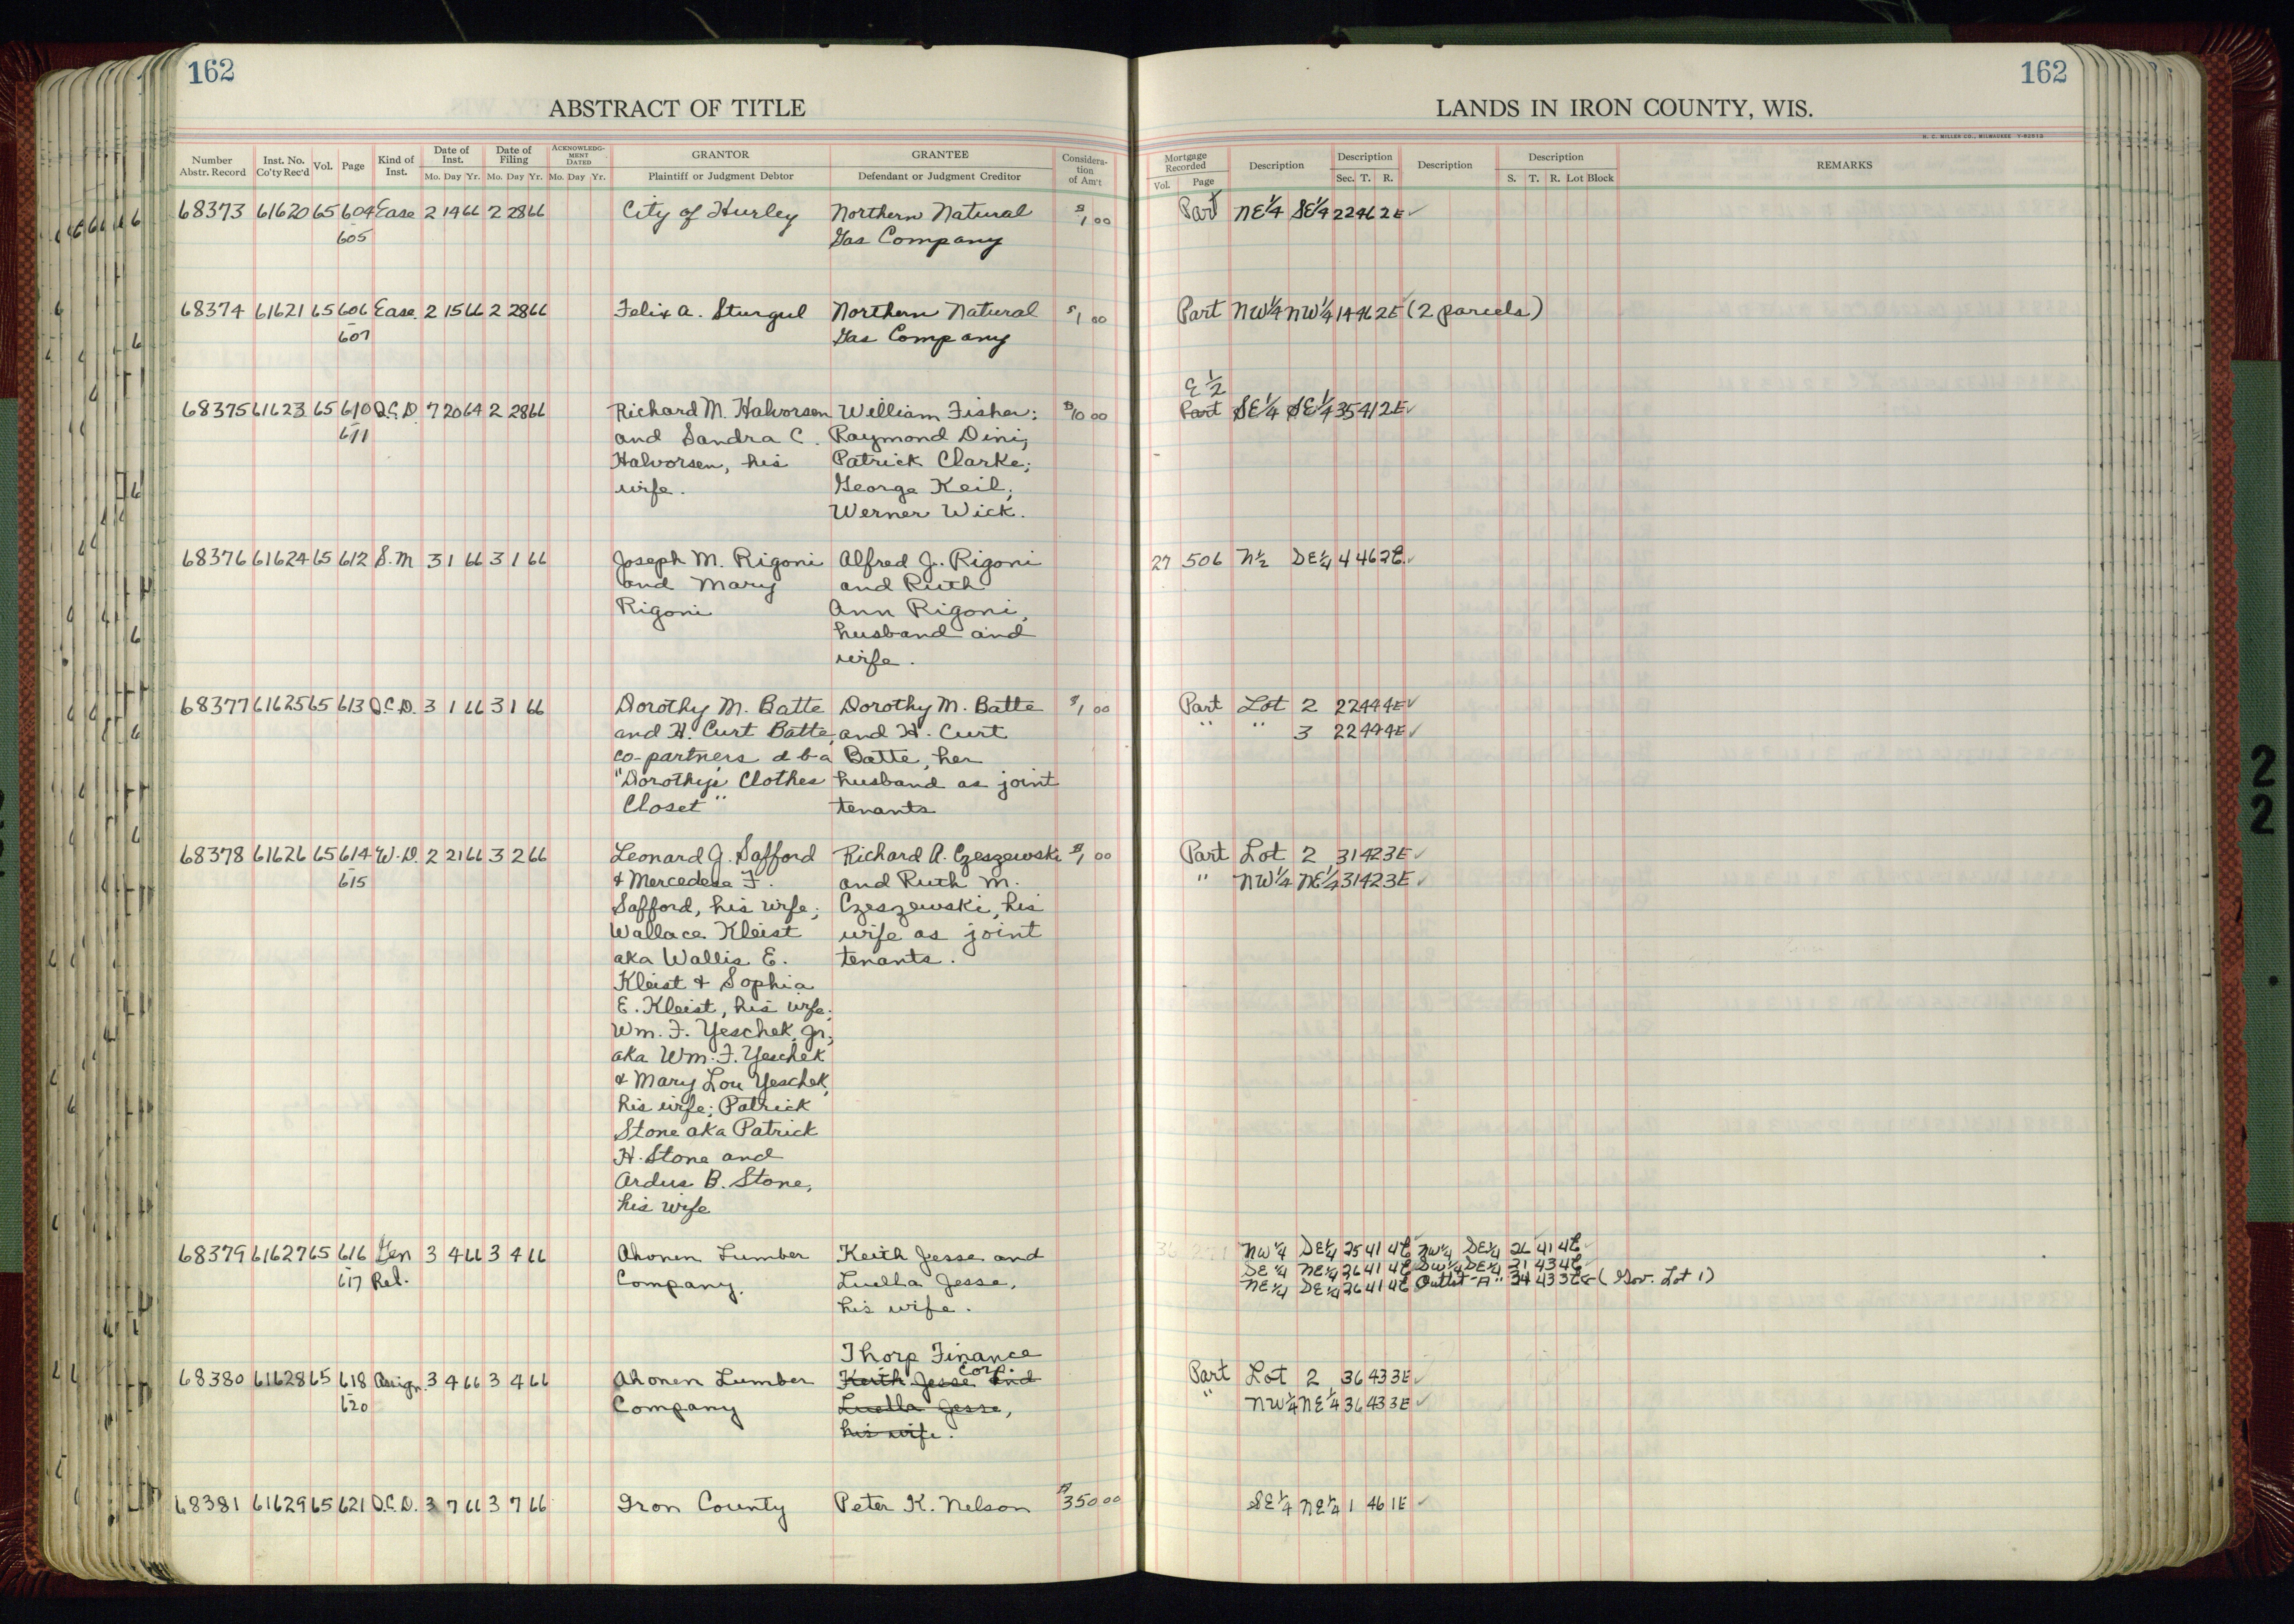 162
162
ABSTRACT OF TITLE
LANDS IN IRON COUNTY, WIS.
H. C. MILLER CO., MILWAUKEE
Number Abstr. Record Inst. No. Co'ty Rec'd Vol. Page Kind of Inst. Date of Inst. Mo. Day Yr. Date of Filing Mo. Day Yr. ACKNOWLEDG-MENT DATED Mo. Day Yr. GRANTOR Plaintiff or Judgment Debtor GRANTEE Defendant or Judgment Creditor Considera-tion of Am't
Mortgage Recorded Vol. Page Description Description Sec. T. R. Description Description S. T. R. Lot Block REMARKS
68373 61620 65 604 Ease 2 14 66 2 28 66 City of Hurley Northern Natural $1 00 Part NE1/4 SE1/4 22 46 2E ✓
605 Gas Company
68374 61621 65 606 Ease. 2 15 66 2 28 66 Felix A. Sturgul Northern Natural $1 00 Part NW1/4 NW1/4 14 46 2E (2 parcels)
607 Gas Company
E 1/2
68375 61623 65 610 Q.C.D. 7 20 64 2 28 66 Richard M. Halvorsen William Fisher; $10 00 Part SE1/4 SE1/4 35 41 2E ✓
611 and Sandra C. Raymond Dini;
Halvorsen, his Patrick Clarke;
wife. George Keil;
Werner Wick.
68376 61624 65 612 S.M 3 1 66 3 1 66 Joseph M. Rigoni Alfred J. Rigoni 27 506 N1/2 SE1/4 4 46 2E ✓
and Mary and Ruth
Rigoni Ann Rigoni,
husband and
wife.
68377 61625 65 613 Q.C.D. 3 1 66 3 1 66 Dorothy M. Batte Dorothy M. Batte $1 00 Part Lot 2 22 44 4E ✓
and H. Curt Batte, and H. Curt " " 3 22 44 4E ✓
co-partners d-b-a Batte, her
"Dorothy's Clothes husband as joint
Closet" tenants
68378 61626 65 614 W.D. 2 21 66 3 2 66 Leonard G. Safford Richard A. Czeszewski $1 00 Part Lot 2 31 42 3E ✓
615 & Mercedese F. and Ruth M. " NW1/4 NE1/4 31 42 3E ✓
Safford, his wife; Czeszewski, his
Wallace Kleist wife as joint
aka Wallis E. tenants.
Kleist & Sophia
E. Kleist, his wife;
Wm. F. Yeschek, Jr.,
aka Wm. F. Yeschek
& Mary Lou Yeschek,
his wife; Patrick
Stone aka Patrick
H. Stone and
Ardus B. Stone,
his wife
68379 61627 65 616 Gen 3 4 66 3 4 66 Ahonen Lumber Keith Jesse and NW1/4 SE1/4 25 41 4E NW1/4 SE1/4 26 41 4E
617 Rel. Company. Luella Jesse, SE1/4 NE1/4 26 41 4E SW1/4 SE1/4 21 43 4E
his wife. NE1/4 SE1/4 26 41 4E Outlot "A" 34 43 3E (Gov. Lot 1)
Thorp Finance
Corp.
68380 61628 65 618 Assign. 3 4 66 3 4 66 Ahonen Lumber Keith Jesse and Part Lot 2 36 43 3E ✓
620 Company Luella Jesse, " NW1/4 NE1/4 36 43 3E ✓
his wife.
68381 61629 65 621 Q.C.D. 3 7 66 3 7 66 Iron County Peter K. Nelson $350 00 SE1/4 NE1/4 1 46 1E ✓
22